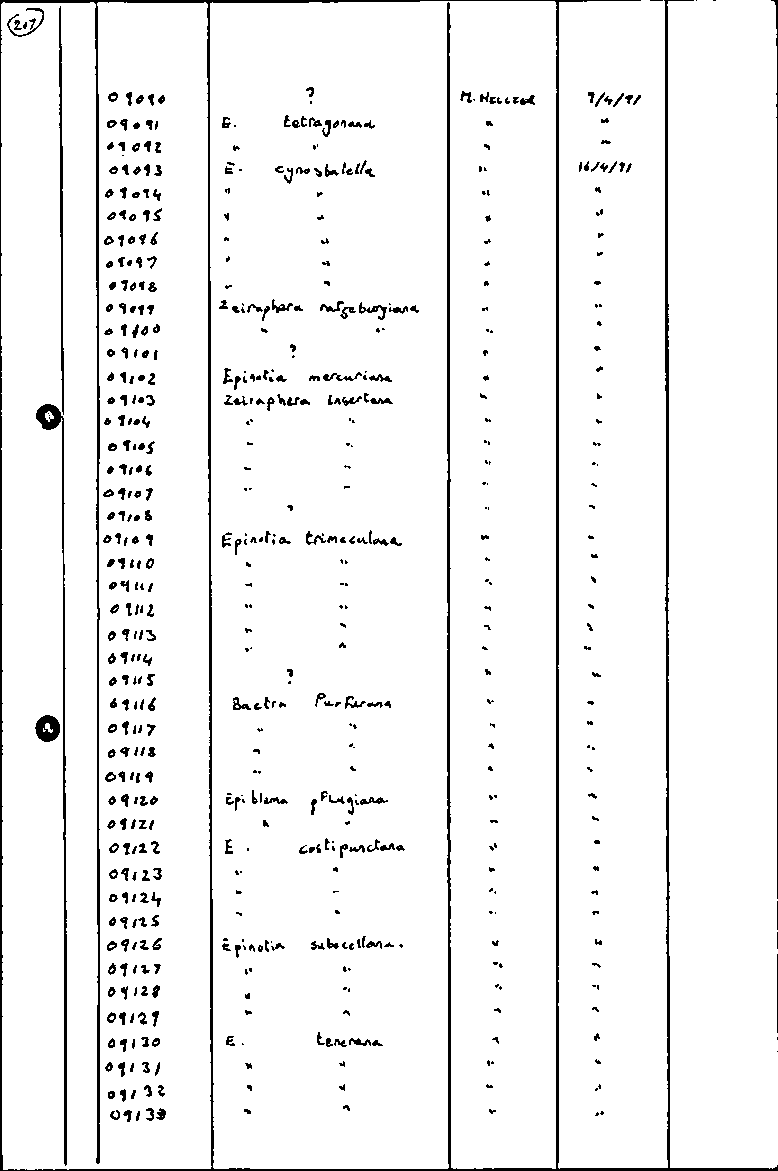 207
09090 ? M. Hellier 9/4/91
09091 E. tetragonana " "
09092 " " " "
09093 E. cynosbatella " 16/4/91
09094 " " " "
09095 " " " "
09096 " " " "
09097 " " " "
09098 " " " "
09099 Zeiraphera ratzeburgiana " "
09100 " " " "
09101 ? " "
09102 Epinotia mercuriana " "
09103 Zeiraphera insertana " "
09104 " " " "
09105 " " " "
09106 " " " "
09107 " " " "
09108 " " "
09109 Epinotia trimaculana " "
09110 " " " "
09111 " " " "
09112 " " " "
09113 " " " "
09114 " " " "
09115 ? " "
09116 Bactra furfurana " "
09117 " " " "
09118 " " " "
09119 " " " "
09120 Epiblema pflugiana " "
09121 " " " "
09122 E. costipunctana " "
09123 " " " "
09124 " " " "
09125 " " " "
09126 Epinotia subocellana. " "
09127 " " " "
09128 " " " "
09129 " " " "
09130 E. tenerana " "
09131 " " " "
09132 " " " "
09133 " " " "